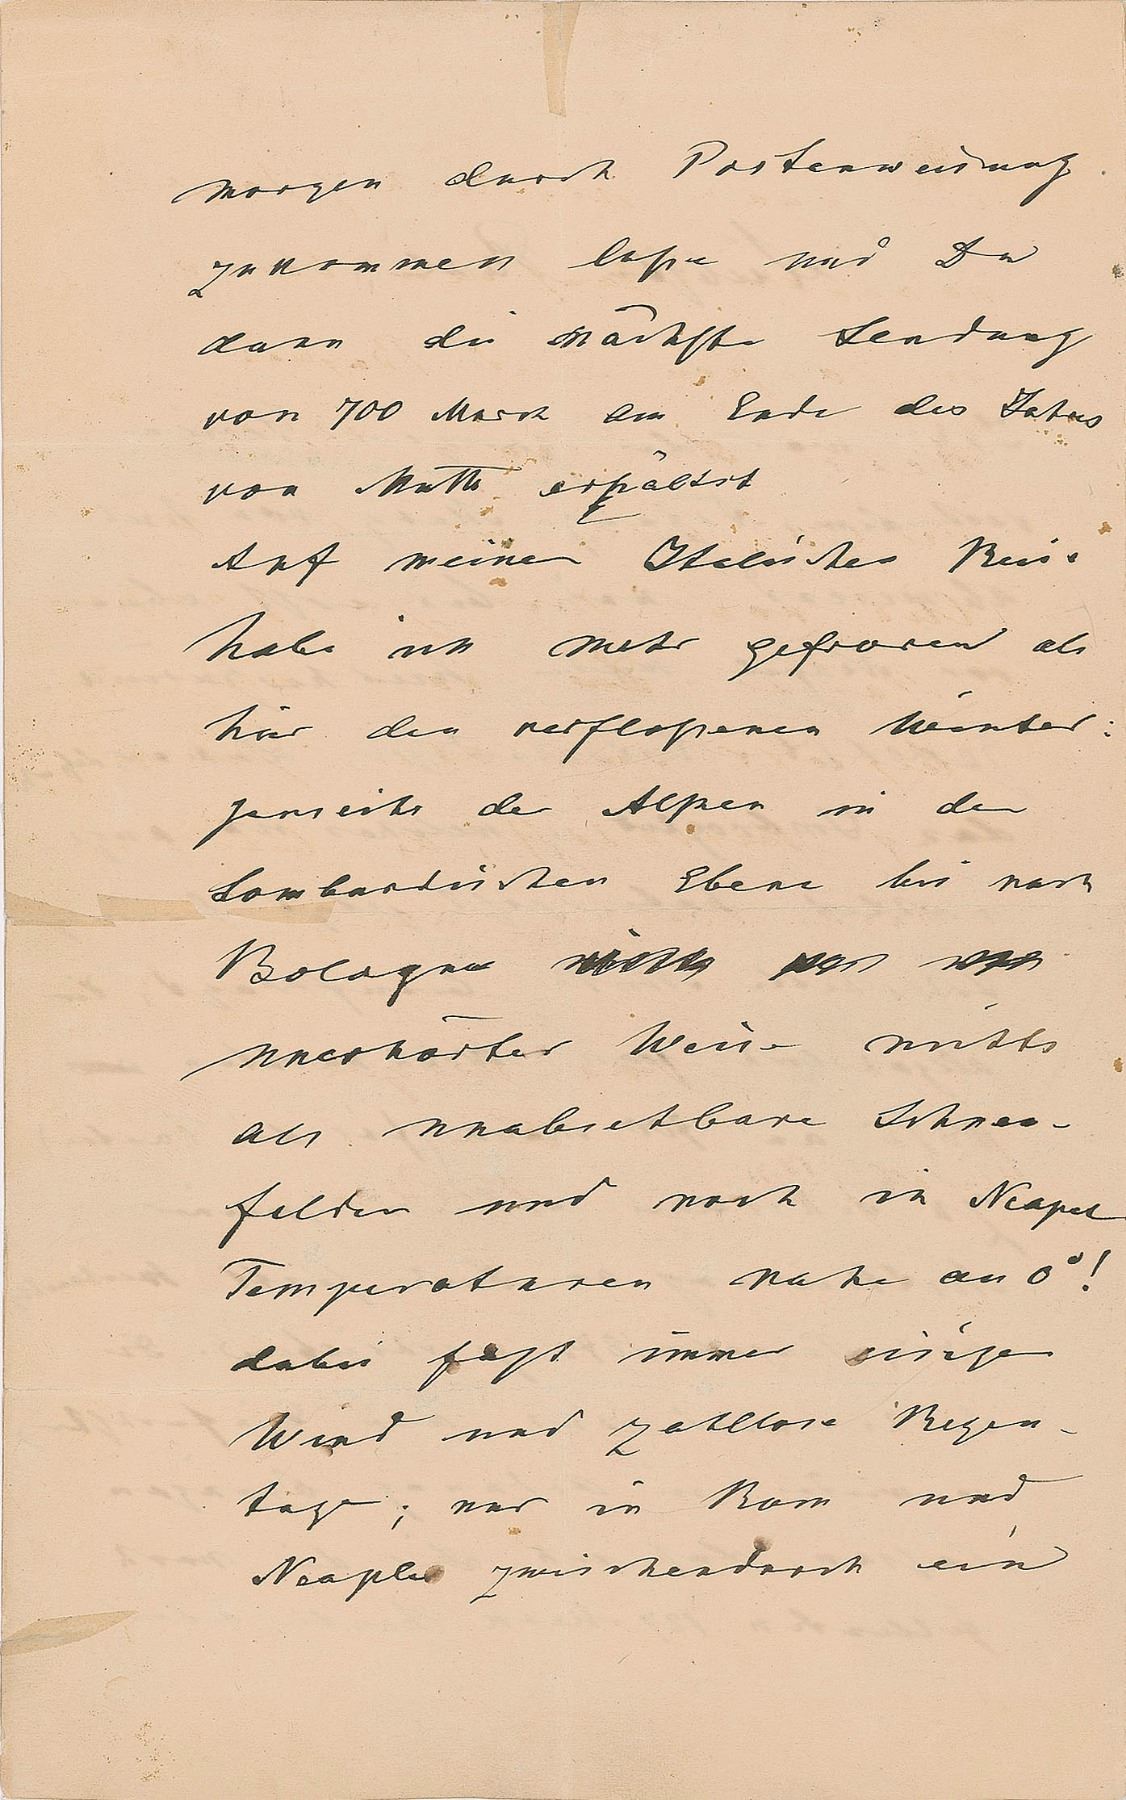 morgen durch Postanweisung
zukommen lasse und Du
dann die nächste Sendung
von 700 Mark am Ende des Jahres
von Mutter erhältst
Auf meiner Italischen Reise
habe ich mehr gefroren als
hier den verflossenen Winter:
jenseits der Alpen in der
Lombardischen Ebene bis nach
Bologna
unerhörter Weise nichts
als unabsehbare Schnee-
felder und noch in Neapel
Temperaturen nahe an 0°!
dabei fast immer eisiger
Wind und zahllose Regen-
tage; nur in Rom und
Neapel zwischendurch ein